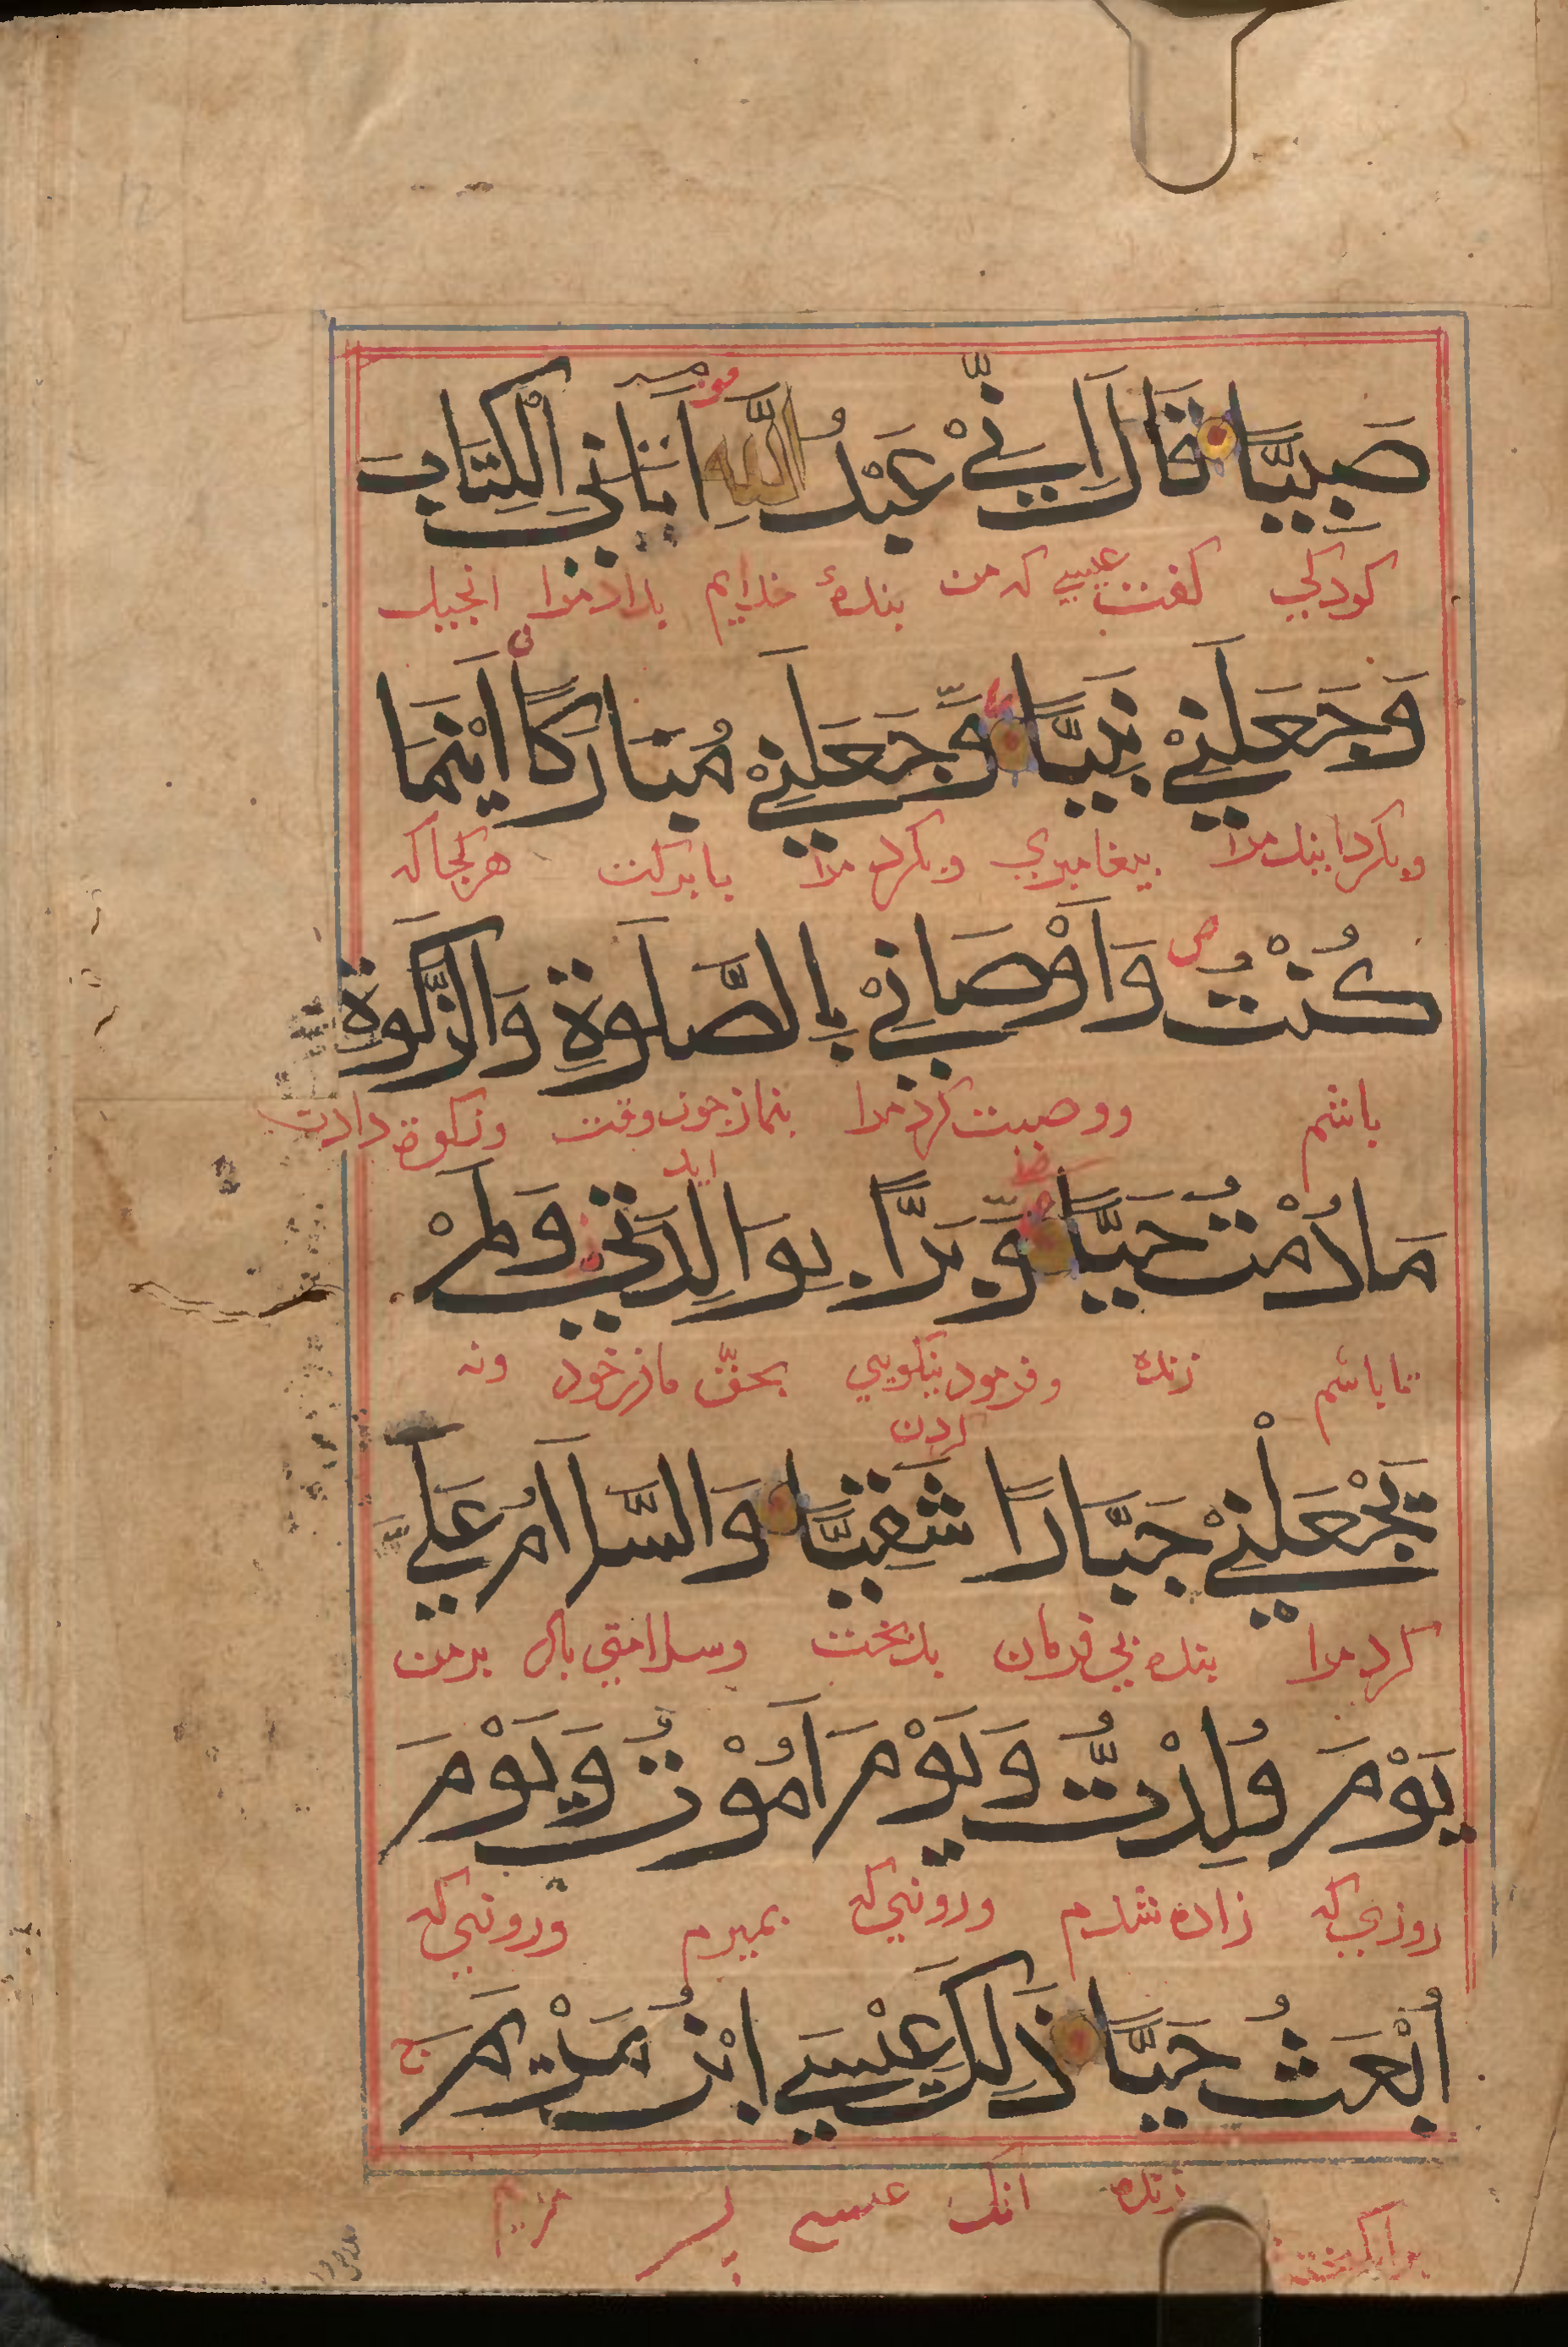 صَبِيًّا قَالَ اِنِّيْ عَبْدُ اللّٰهِ اٰتَانِيَ الْكِتَابَ
كودكي كفت عيسي كه من بندهٔ خدايم بداد مرا انجيل
وَجَعَلَنِيْ نَبِيًّا وَّجَعَلَنِيْ مُبَارَكًا اَيْنَمَا
وبكردانيد مرا بيغامبري وبكرد مرا با بركت هر كجا كه
كُنْتُ وَاَوْصَانِيْ بِالصَّلَوةِ وَالزَّكَوةِ
باشم ووصيت كرد مرا بنماز جون وقت ايد وزكوة دادن
مَا دُمْتُ حَيًّا وَّبَرًّا بِوَالِدَتِيْ وَلَمْ
تا باشم زنده وفرمود نيكويي كردن بحقّ ماذر خود ونه
يَجْعَلْنِيْ جَبَّارًا شَقِيًّا وَالسَّلَامُ عَلَيَّ
كرد مرا بنده بي فرمان بدبخت وسلامتي باد بر من
يَوْمَ وُلِدْتُّ وَيَوْمَ اَمُوْتُ وَيَوْمَ
روزي كه زاده شدم وروزي كه بميرم وروزي كه
اُبْعَثُ حَيًّا ذَلِكَ عِيْسَي ابْنُ مَرْيَمَ
زنده انك عيسي بسر مريم